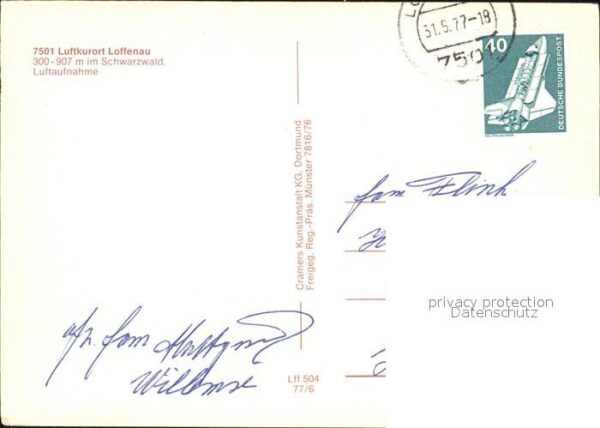 7501 Luftkurort Loffenau
300-907 m im Schwarzwald.
Luftaufnahme
LO
31.5.77-18
7501
40
DEUTSCHE BUNDESPOST
Cramers Kunstanstalt KG. Dortmund
Freigeg. Reg.-Präs. Münster 7816/76
fam Flink
privacy protection
Datenschutz
fam
Willemse
Lff 504
77/6